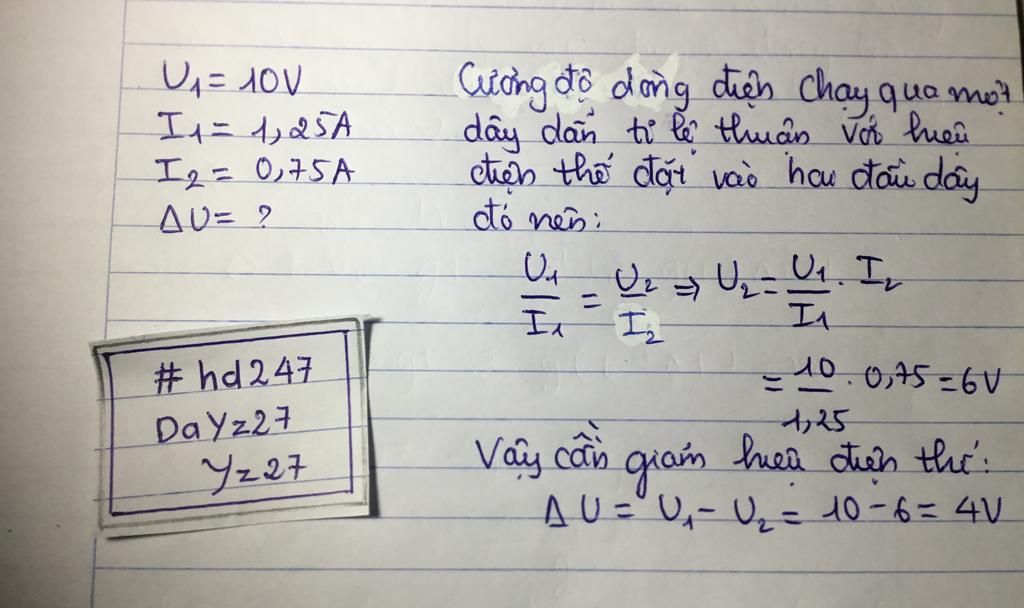 U₁ = 10V
I₁ = 1,25A
I₂ = 0,75A
ΔU = ?
Cường độ dòng điện chạy qua một
dây dẫn tỉ lệ thuận với hiệu
điện thế đặt vào hai đầu dây
đó nên:
U₁/I₁ = U₂/I₂ ⇒ U₂ = U₁/I₁ . I₂
= 10/1,25 . 0,75 = 6V
Vậy cần giảm hiệu điện thế:
ΔU = U₁ - U₂ = 10 - 6 = 4V
# hd247
DaYz27
Yz27